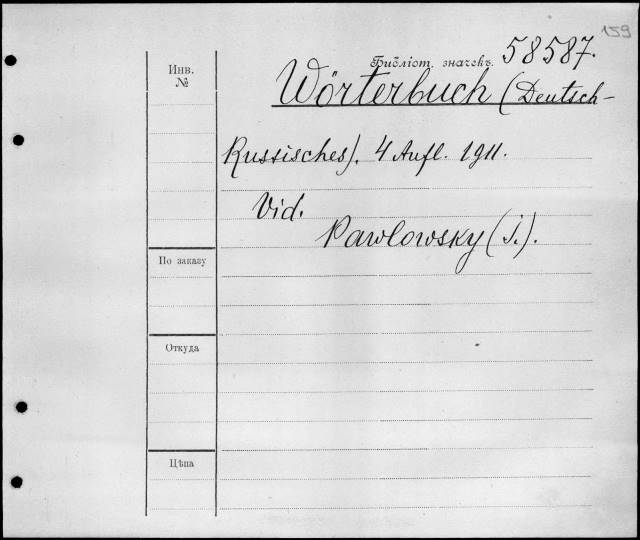 159
Библіот. значекъ. 58587.
Инв.
№
Wörterbuch (Deutsch-
Russisches). 4 Aufl. 1911.
Vid.
Pawlowsky (J.).
По заказу
Откуда
Цѣна